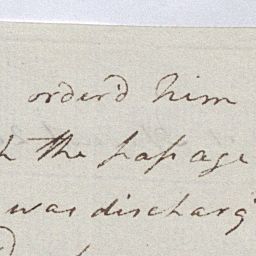 order'd him
the passage
was discharg'